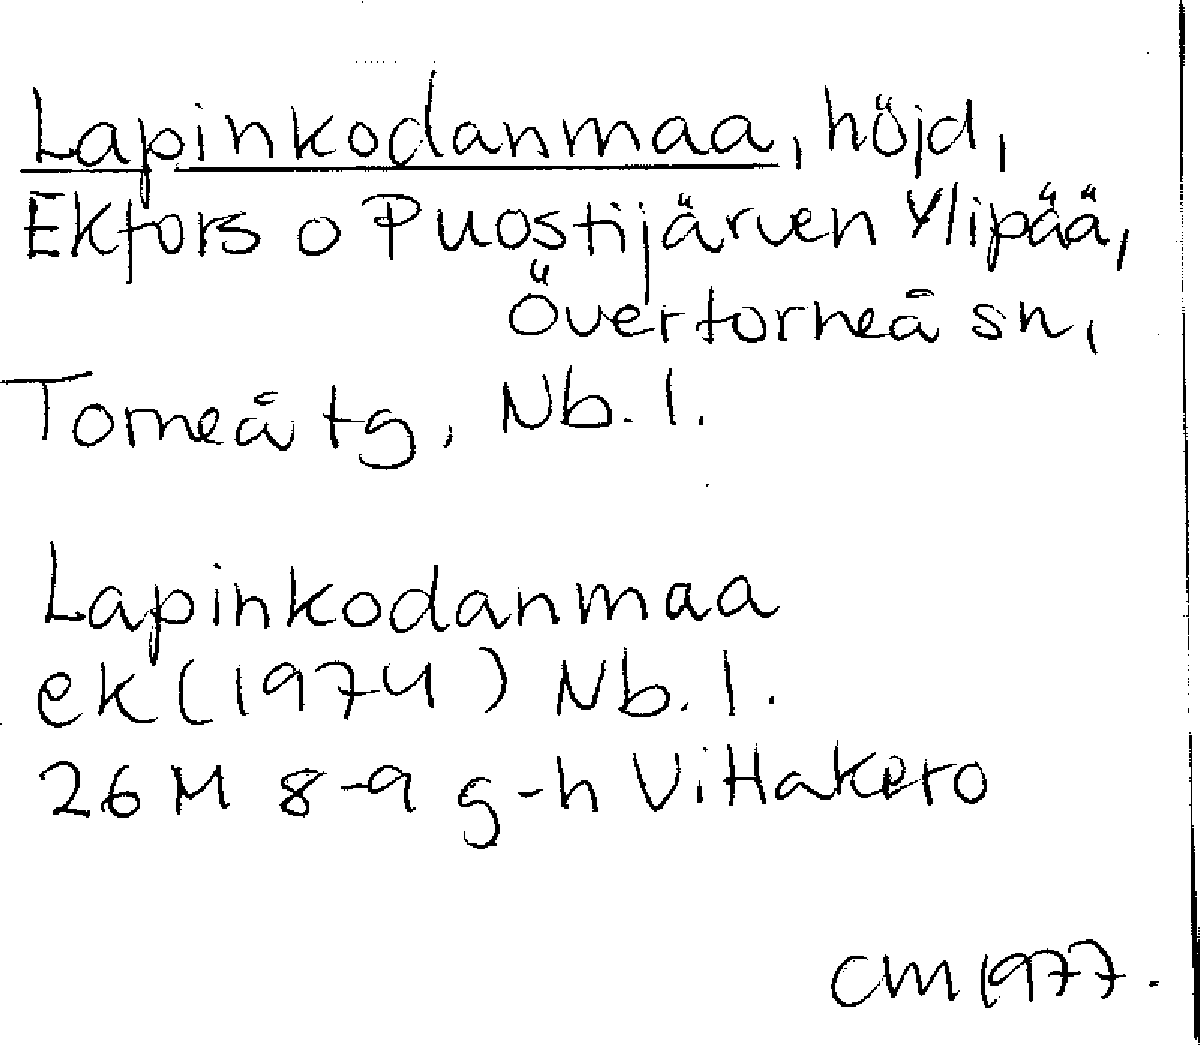 Lapinkodanmaa, höjd,
Ekfors o Puostijärven Ylipää,
Övertorneå sn,
Torneå tg, Nb. l.
Lapinkodanmaa
ek (1974) Nb. l.
26 M 8-9 g-h Vittakero
CM 1977.